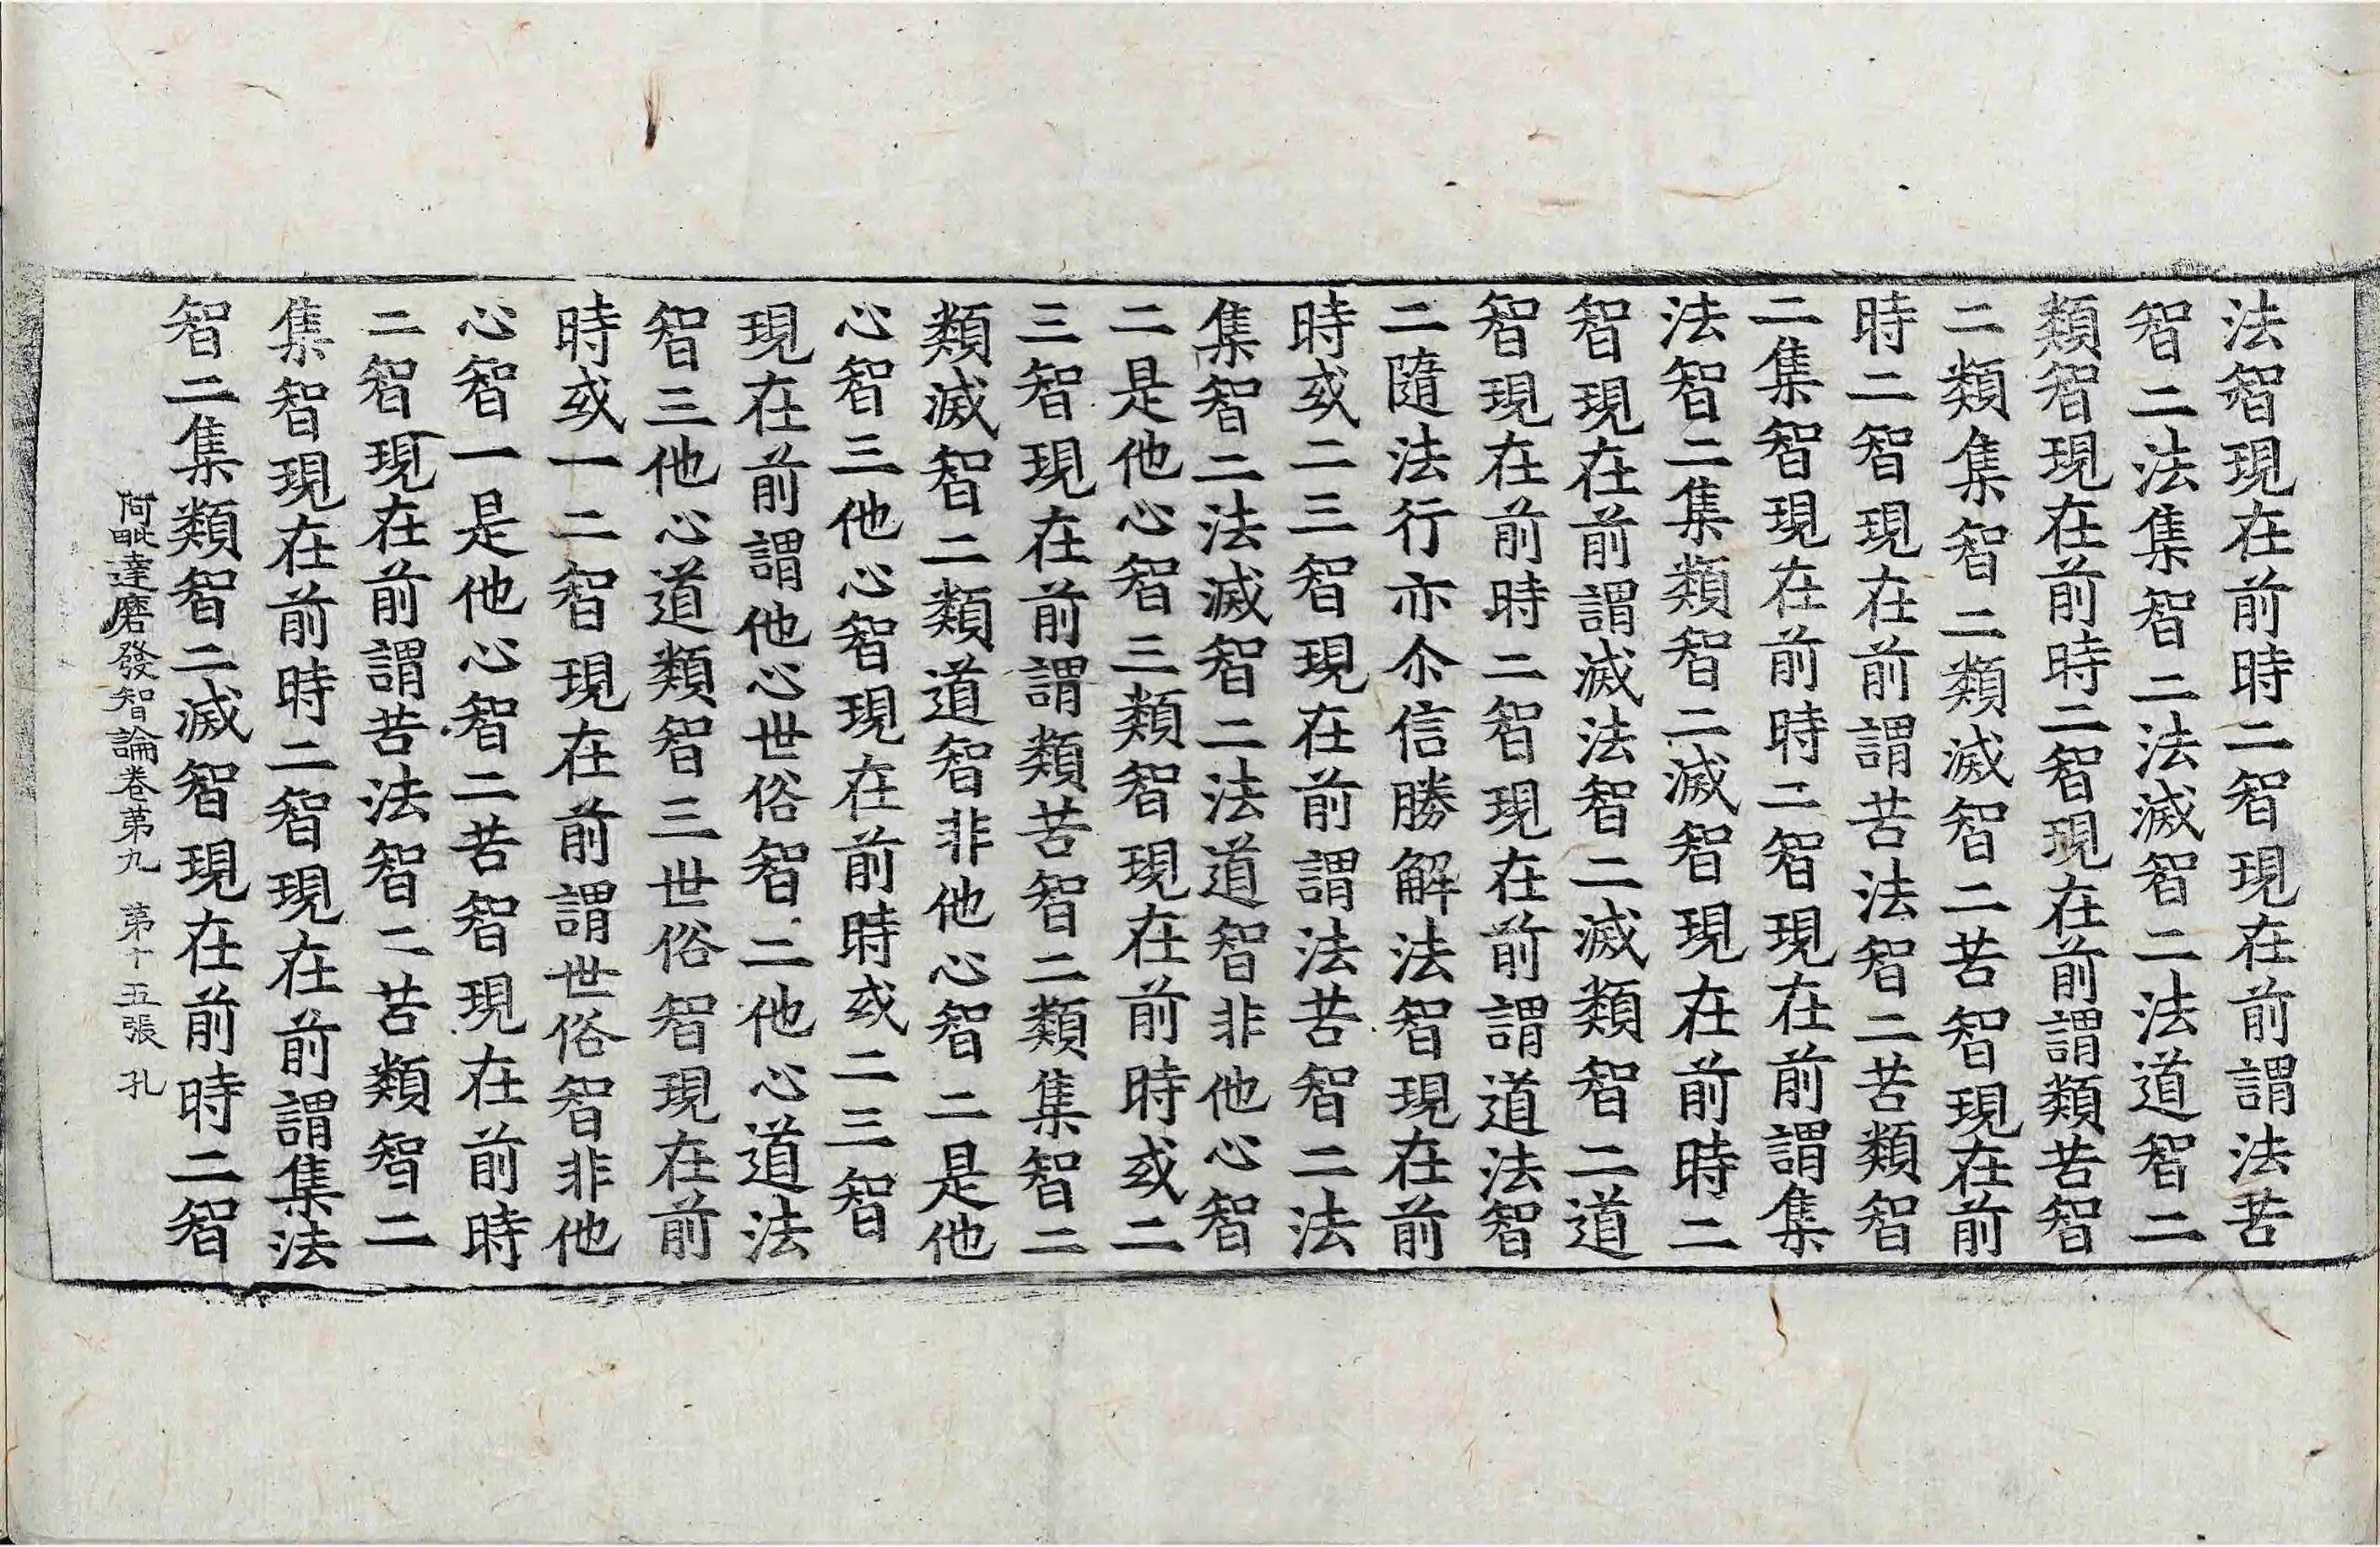 法智現在前時二智現在前謂法苦
智二法集智二法滅智二法道智二
類智現在前時二智現在前謂類苦智
二類集智二類滅智二苦智現在前
時二智現在前謂苦法智二苦類智
二集智現在前時二智現在前謂集
法智二集類智二滅智現在前時二
智現在前謂滅法智二滅類智二道
智現在前時二智現在前謂道法智
二隨法行亦尒信勝解法智現在前
時或二三智現在前謂法苦智二法
集智二法滅智二法道智非他心智
二是他心智三類智現在前時或二
三智現在前謂類苦智二類集智二
類滅智二類道智非他心智二是他
心智三他心智現在前時或二三智
現在前謂他心世俗智二他心道法
智三他心道類智三世俗智現在前
時或一二智現在前謂世俗智非他
心智一是他心智二苦智現在前時
二智現在前謂苦法智二苦類智二
集智現在前時二智現在前謂集法
智二集類智二滅智現在前時二智
阿毗達磨發智論卷苐九 苐十五張 孔